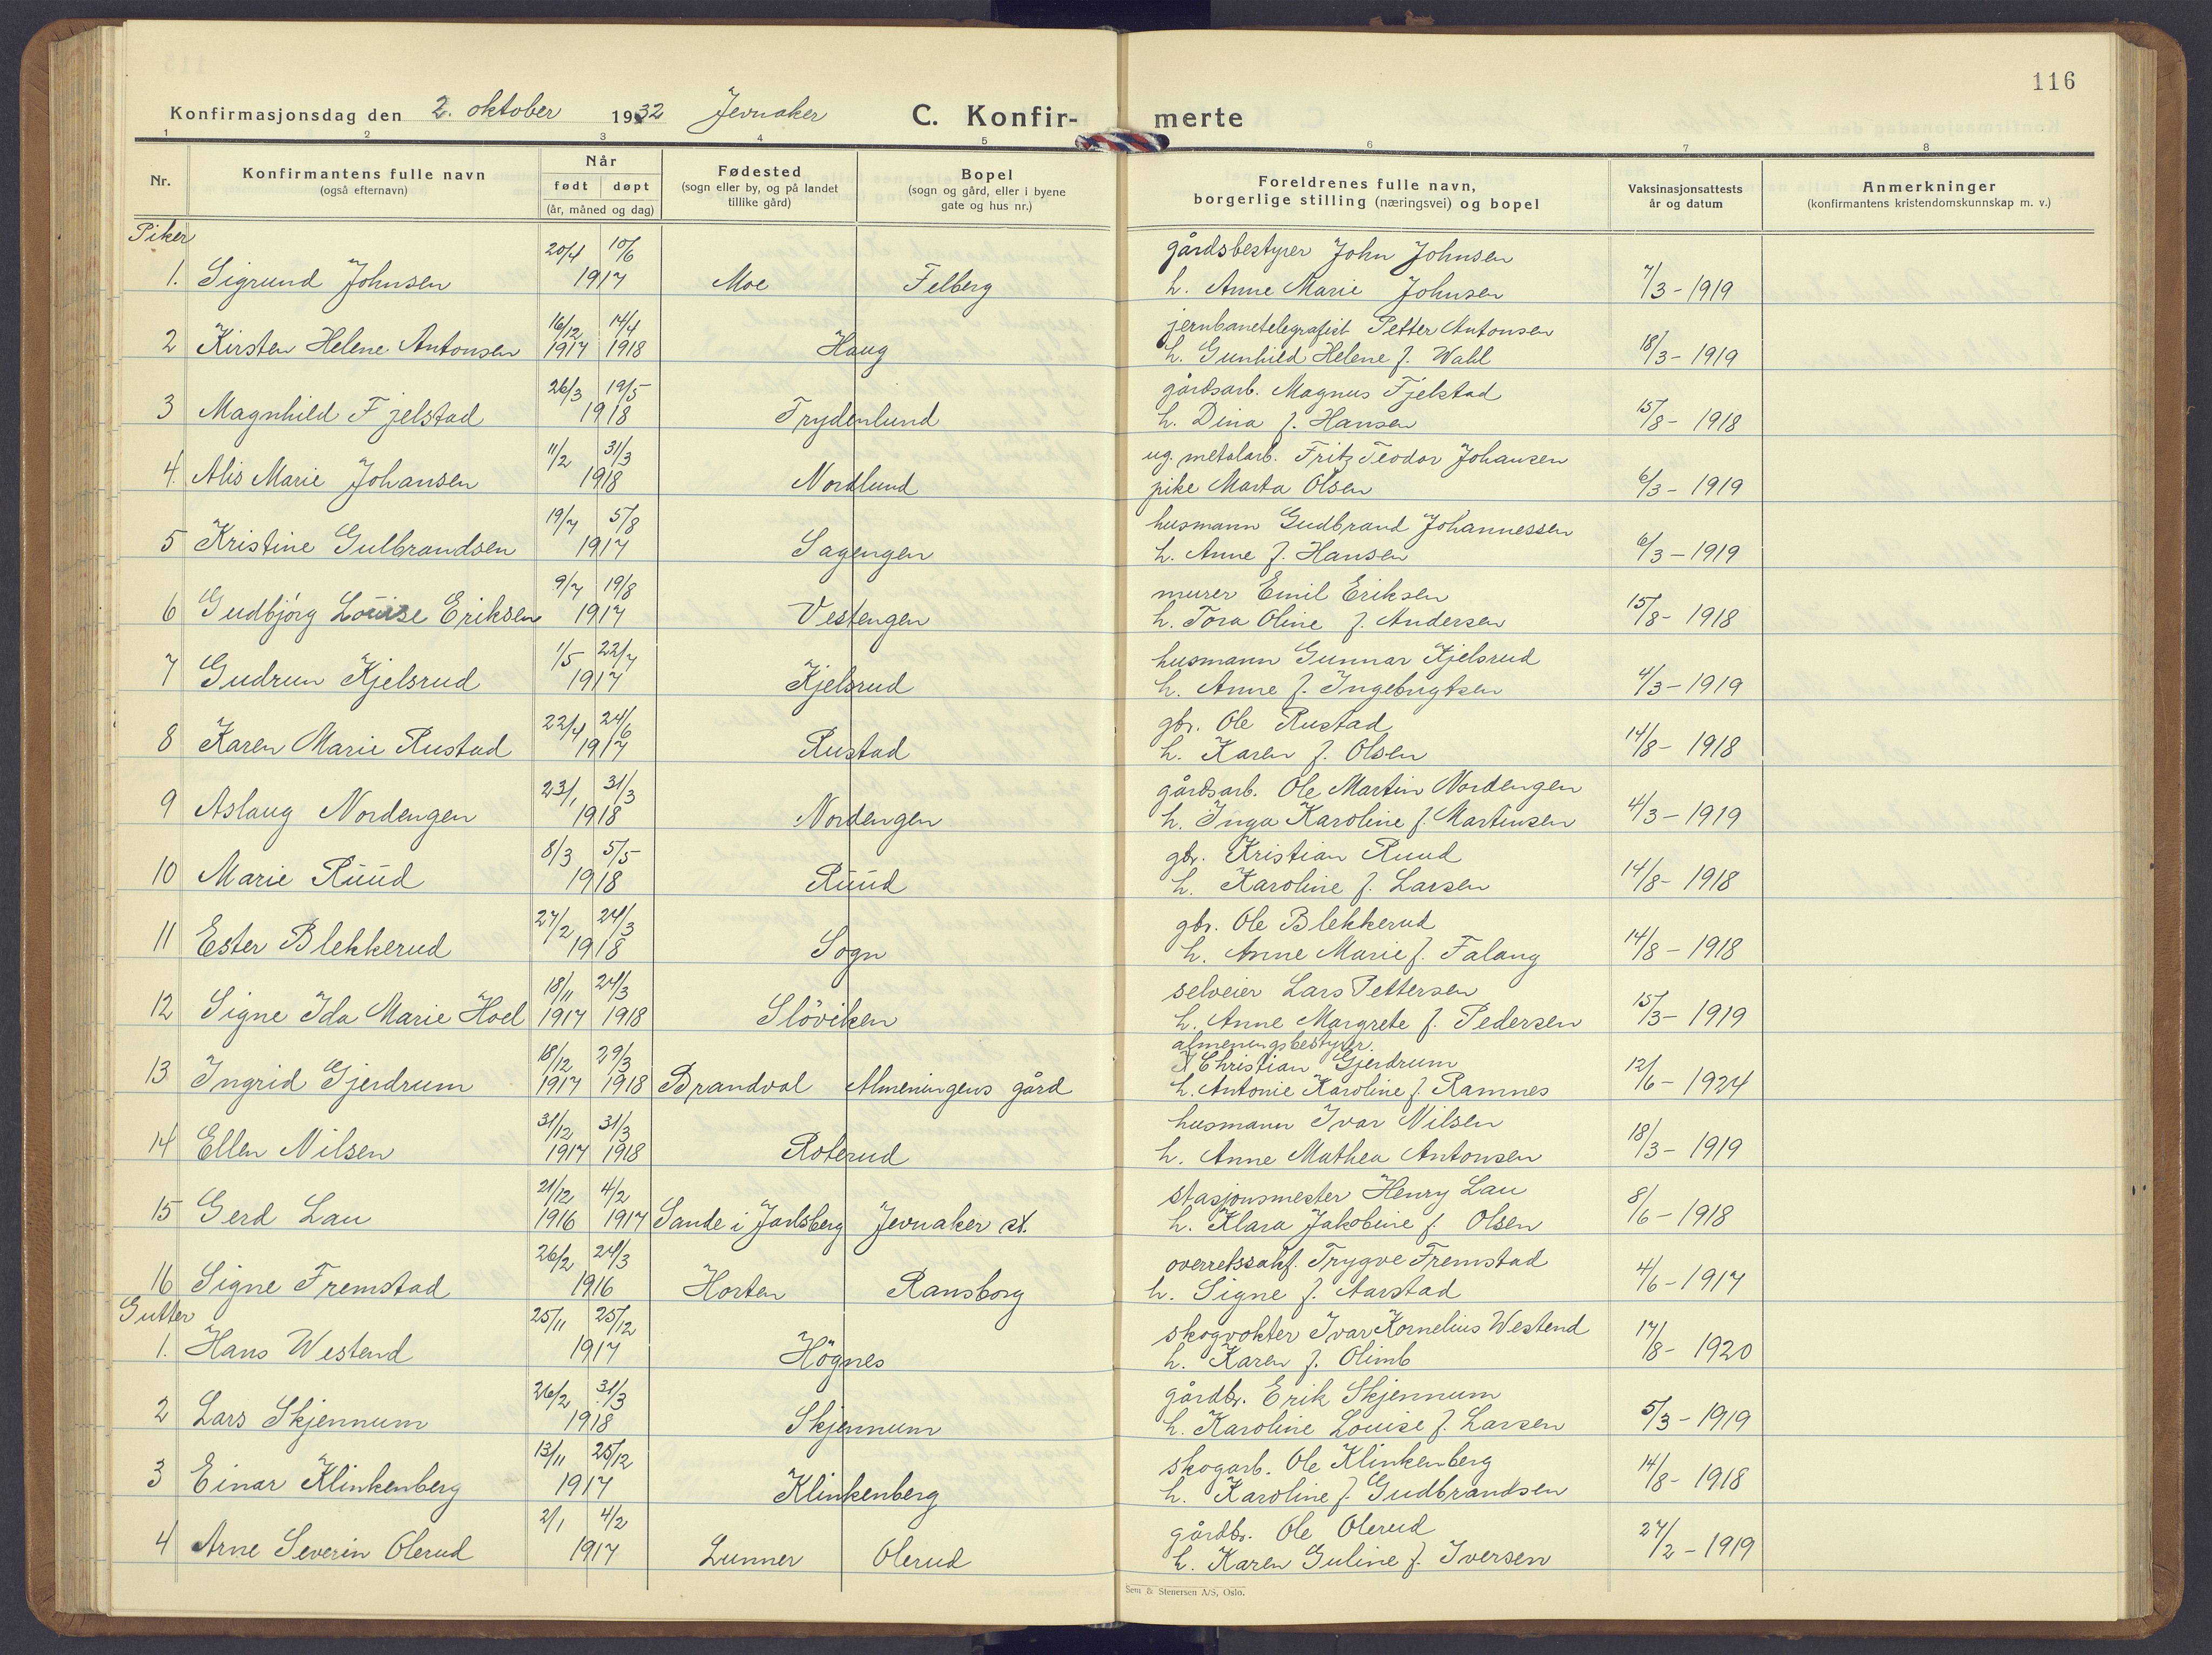 116
Konfirmasjonsdag den 2. oktober 1932 Jevnaker C. Konfir- merte
1 2 3 4 5 6 7 8
Nr. Konfirmantens fulle navn (også efternavn) Når født døpt (år, måned og dag) Fødested (sogn eller by, og på landet tillike gård) Bopel (sogn og gård, eller i byene gate og hus nr.) Foreldrenes fulle navn, borgerlige stilling (næringsvei) og bopel Vaksinasjonsattests år og datum Anmerkninger (konfirmantens kristendomskunnskap m. v.)
Piker
20/4 10/6 gårdsbestyrer John Johnsen
1. Sigrund Johnsen 1917 Moe Felberg h. Anne Marie Johnsen 7/3 - 1919
16/12 14/4 jernbanetelegrafist Petter Antonsen
2 Kirsten Helene Antonsen 1917 1918 Haug h. Gunhild Helene f. Wahl 18/3 - 1919
26/3 19/5 gårdsarb. Magnus Fjelstad
3 Magnhild Fjelstad 1918 Frydenlund h. Dina f. Hansen 15/8 - 1918
11/2 31/3 ug. metalarb. Fritz Teodor Johansen
4. Alis Marie Johansen 1918 Nordlund pike Marta Olsen 6/3 - 1919
19/7 5/8 husmann Gudbrand Johannessen
5 Kristine Gulbrandsen 1917 Sagengen h. Anne f. Hansen 6/3 - 1919
9/7 19/8 murer Emil Eriksen
6 Gudbjörg Louise Eriksen 1917 Vestengen h. Tora Oline f. Andersen 15/8 - 1918
1/5 22/7 husmann Gunnar Kjelsrud
7 Gudrun Kjelsrud 1917 Kjelsrud h. Anne f. Ingebrigtsen 4/3 - 1919
22/4 24/6 gbr. Ole Rustad
8 Karen Marie Rustad 1917 Rustad h. Karen f. Olsen 14/8 - 1918
23/1 31/3 gårdsarb. Ole Martin Nordengen
9 Aslaug Nordengen 1918 Nordengen h. Inga Karoline f. Martinsen 4/3 - 1919
8/3 5/5 gbr. Kristian Ruud
10 Marie Ruud 1918 Ruud h. Karoline f. Larsen 14/8 - 1918
27/2 24/3 gbr. Ole Blekkerud
11 Ester Blekkerud 1918 Sogn h. Anne Marie f. Falang 14/8 - 1918
18/11 24/3 selveier Lars Pettersen
12 Signe Ida Marie Hoel 1917 1918 Slöviken h. Anne Margrete f. Pedersen 15/3 - 1919
almeningsbestyrer
18/12 29/3 Christian Gjerdrum
13 Ingrid Gjerdrum 1917 1918 Brandval Almeningens gård h. Antonie Karoline f. Ramnes 12/6 - 1924
31/12 31/3 husmann Ivar Nilsen
14 Ellen Nilsen 1917 1918 Roterud h. Anne Mathea Antonsen 18/3 - 1919
21/12 4/2 stasjonsmester Henry Lau
15 Gerd Lau 1916 1917 Sande i Jarlsberg Jevnaker st. h. Klara Jakobine f. Olsen 8/6 - 1918
26/2 24/3 overretssakf. Trygve Fremstad
16 Signe Fremstad 1916 Horten Ransborg h. Signe f. Aarstad 4/6 - 1917
Gutter
25/11 25/12 skogvokter Ivar Kornelius Westend
1. Hans Westend 1917 Högnes h. Karen f. Olimb 17/8 - 1920
26/2 31/3 gårdbr. Erik Skjennum
2 Lars Skjennum 1918 Skjennum h. Karoline Louise f. Larsen 5/3 - 1919
13/11 25/12 skogarb. Ole Klinkenberg
3 Einar Klinkenberg 1917 Klinkenberg h. Karoline f. Gudbrandsen 14/8 - 1918
2/1 4/2 gårdbr. Ole Olerud
4 Arne Severin Olerud 1917 Lunner Olerud h. Karen Guline f. Iversen 27/2 - 1919
Sem & Stenersen A/S, Oslo.